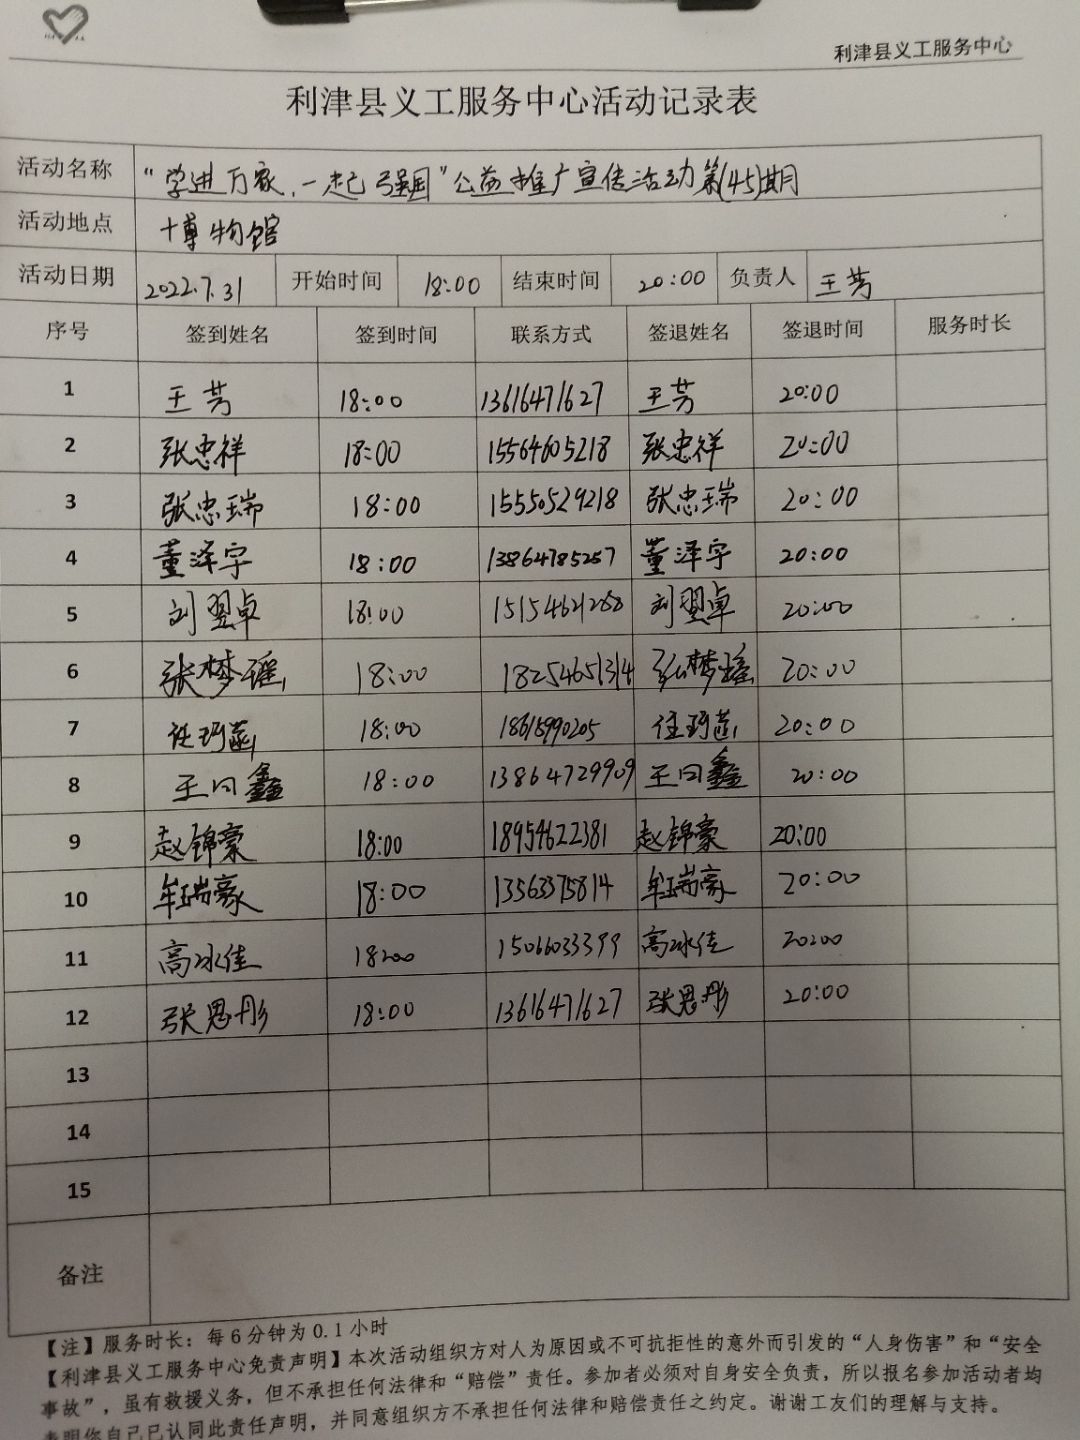 利津县义工服务中心
利津县义工服务中心活动记录表
活动名称 “学进万家，一起强国”公益推广宣传活动第(45)期
活动地点 博物馆
活动日期 2022.7.31 开始时间 18:00 结束时间 20:00 负责人 王芳
序号 签到姓名 签到时间 联系方式 签退姓名 签退时间 服务时长
1 王芳 18:00 13616471627 王芳 20:00
2 张忠祥 18:00 15564605218 张忠祥 20:00
3 张忠瑞 18:00 15550529218 张忠瑞 20:00
4 董泽宇 18:00 13864785257 董泽宇 20:00
5 刘翌卓 18:00 15154621288 刘翌卓 20:00
6 张梦瑶 18:00 18254651314 张梦瑶 20:00
7 任玛菡 18:00 18615990205 任玛菡 20:00
8 王曰鑫 18:00 13864729909 王曰鑫 20:00
9 赵锦豪 18:00 18954622381 赵锦豪 20:00
10 牟瑞豪 18:00 13563375814 牟瑞豪 20:00
11 高冰佳 18:00 15066033399 高冰佳 20:00
12 张思彤 18:00 13616471627 张思彤 20:00
13
14
15
备注
【注】服务时长：每6分钟为0.1小时
【利津县义工服务中心免责声明】本次活动组织方对人为原因或不可抗拒性的意外而引发的“人身伤害”和“安全
事故”，虽有救援义务，但不承担任何法律和“赔偿”责任。参加者必须对自身安全负责，所以报名参加活动者均
表明你自己已认同此责任声明，并同意组织方不承担任何法律和赔偿责任之约定。谢谢工友们的理解与支持。